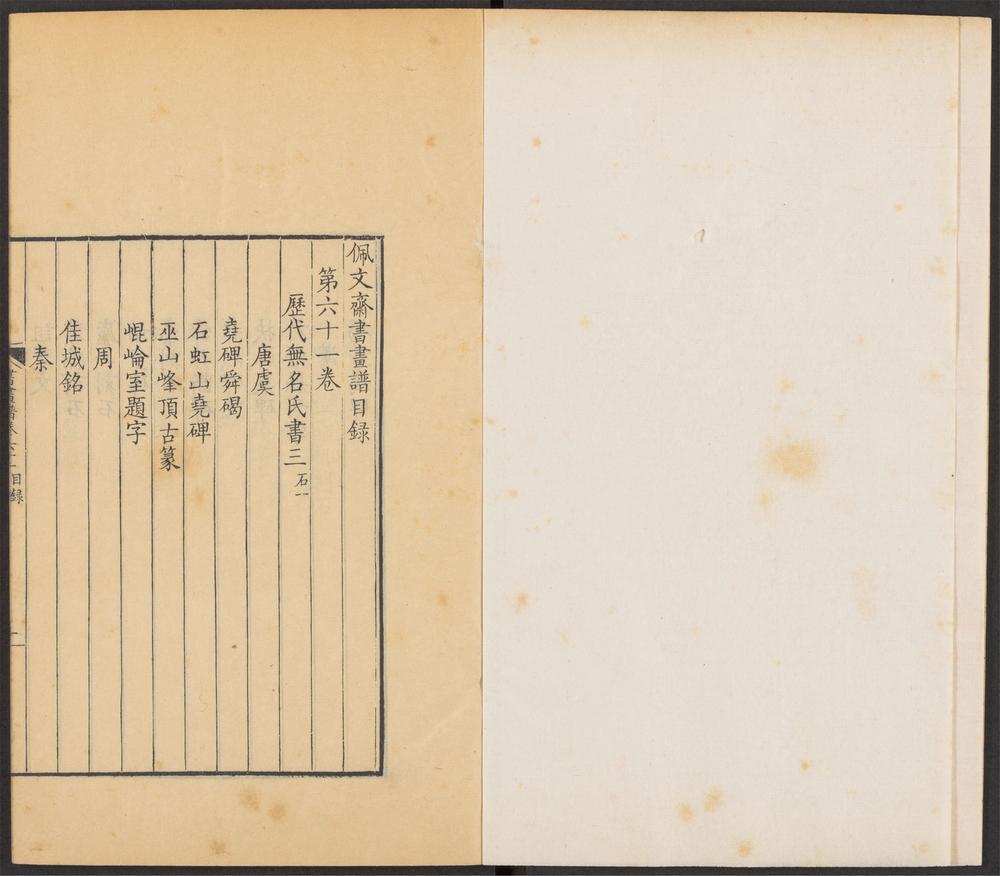 佩文齋書畫譜目録
第六十一卷
歷代無名氏書三 石一
唐虞
堯碑舜碣
石虹山堯碑
巫山峰頂古篆
崐崘室題字
周
佳城銘
秦
書畫譜卷六十一目録
一